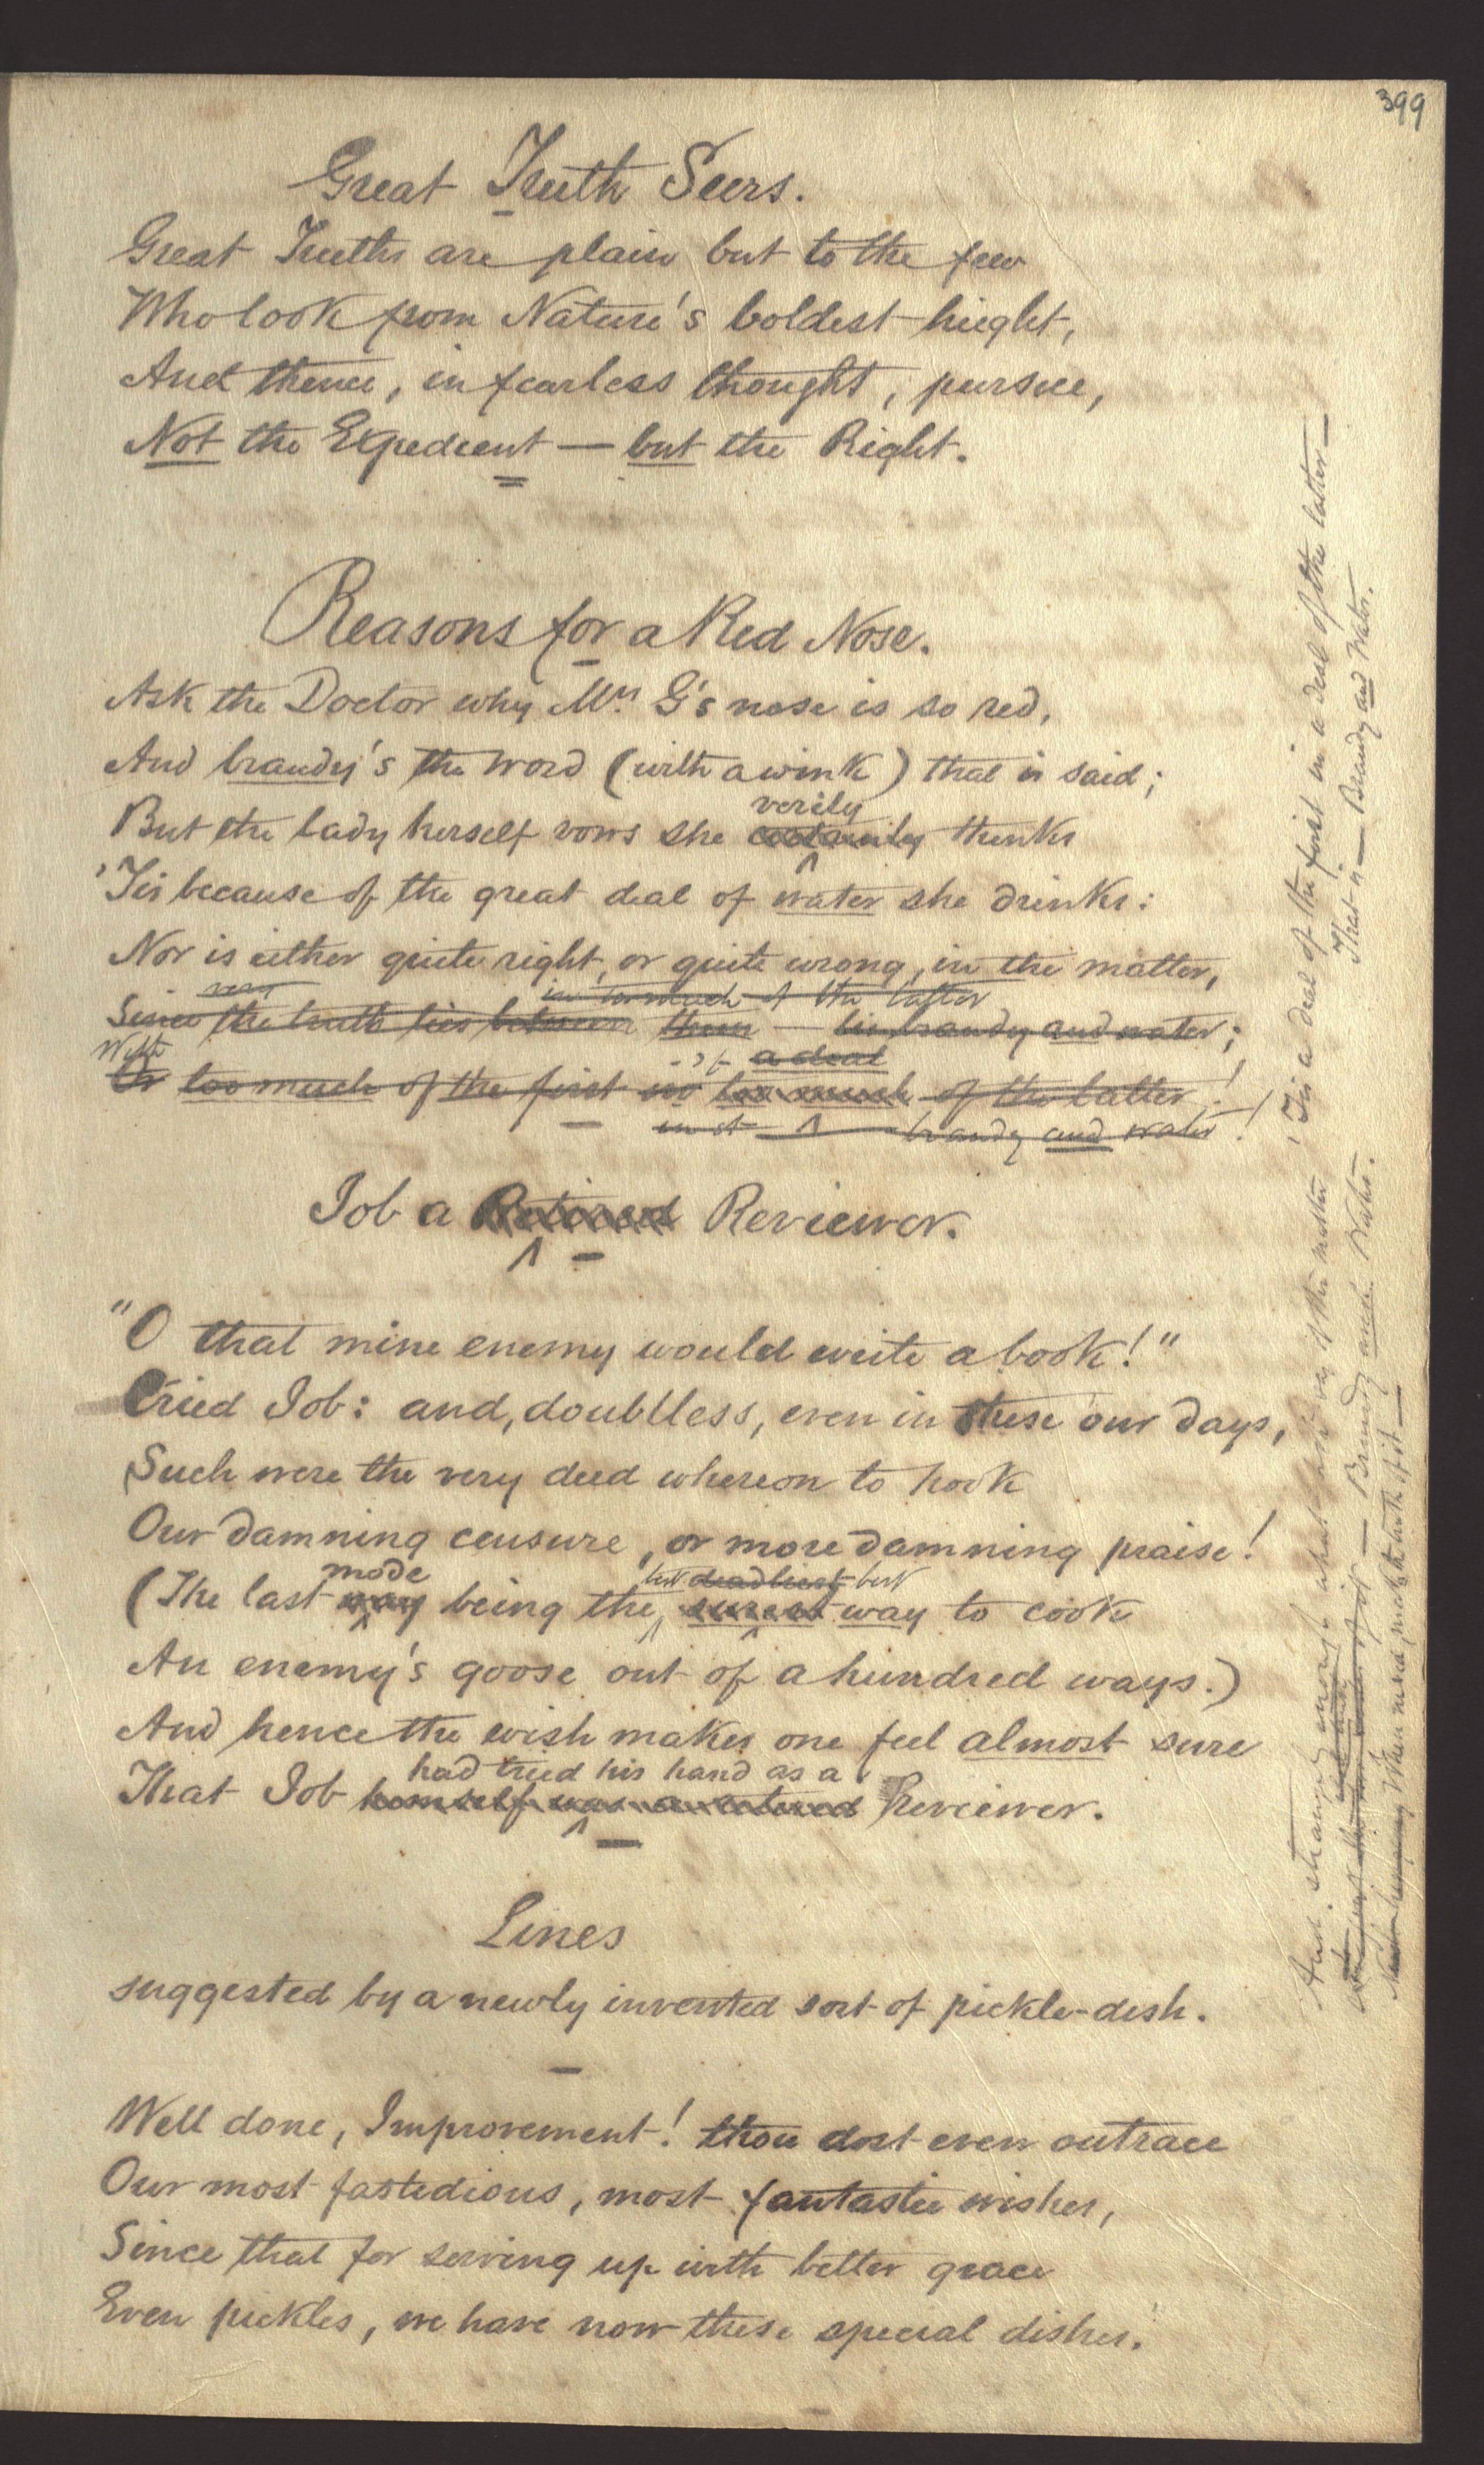 399
Great Truth Seers.
Great Truths are plain but to the few
Who look from Nature's boldest hieght,
And thence, in fearless thought, pursue,
Not the Expedient — but the Right.
Reasons for a Red Nose.
Ask the Doctor why Mrs. G's nose is so red,
And brandy's the word (with a wink) that is said;
verily
But the lady herself vows she certainly thinks
'Tis because of the great deal of water she drinks:
Nor is either quite right, or quite wrong, in the matter,
very in too much of the latter
Since the truth lies between them — in brandy and water;
With of a deal
Or too much of the first in too much of the latter!
brandy and water!
Job a Retired Reviewer.
"O that mine enemy would write a book!"
Cried Job: and, doubtless, even in these our days,
Such were the very deed whereon to hook
Our damning censure, or more damning praise!
mode deadliest
(The last way being the surest way to cook
An enemy's goose out of a hundred ways.)
And hence the wish makes one feel almost sure
had tried his hand as a
That Job himself was a retired Reviewer.
Lines
suggested by a newly invented sort of pickle-dish.
Well done, Improvement! thou dost even outrace
Our most fastedious, most fantastic wishes,
Since that for serving up with better grace
Even pickles, we have now these special dishes.
'Tis a deal of the first in a deal of the latter—
That is — Brandy and Water.
And, strangely enough, what of the matter
— Brandy Water.
When mixed, the truth of it —